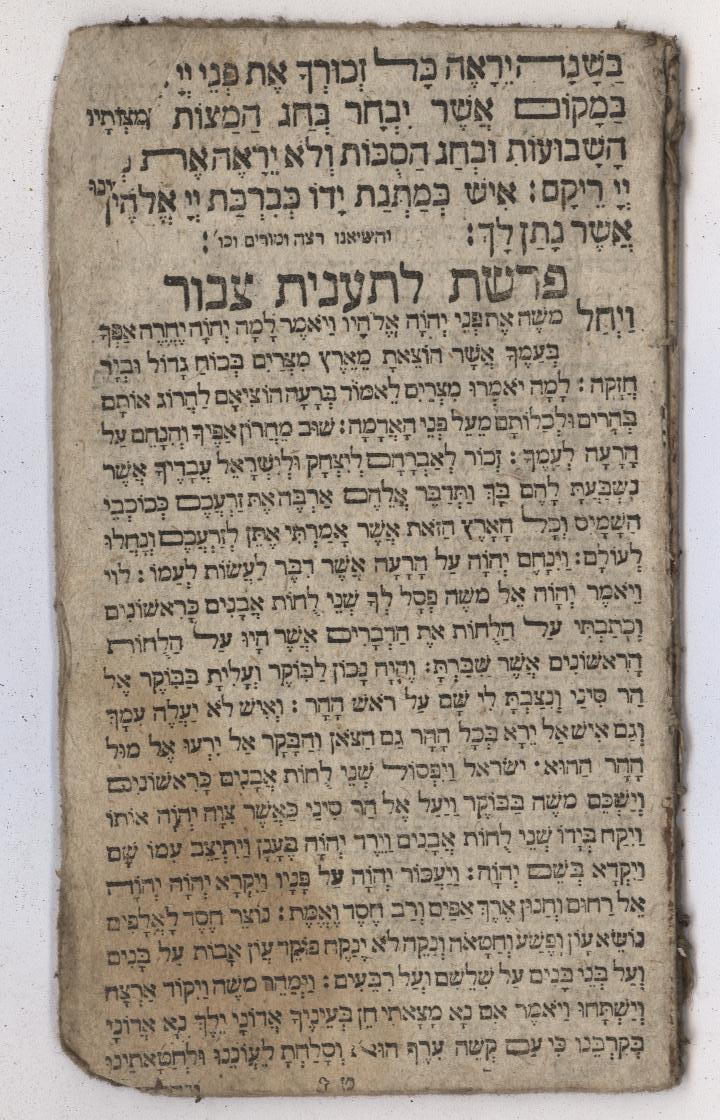 בַּשָּׁנָה יֵרָאֶה כָּל זְכוּרְךָ אֶת פְּנֵי יְיָ
בַּמָּקוֹם אֲשֶׁר יִבְחַר בְּחַג הַמַּצּוֹת
הַשָּׁבוּעוֹת וּבְחַג הַסֻּכּוֹת וְלֹא יֵרָאֶה אֶת
יְיָ רֵיקָם: אִישׁ כְּמַתְּנַת יָדוֹ כְּבִרְכַּת יְיָ אֱלֹהֶיךָ
אֲשֶׁר נָתַן לָךְ: והשיאנו רצה ומודים וכו':
פרשת לתענית צבור
וַיְחַל משֶׁה אֶת פְּנֵי יְהוָֹה אֱלֹהָיו וַיֹּאמֶר לָמָה יְהוָֹה יֶחֱרֶה אַפְּךָ
בְּעַמֶּךָ אֲשֶׁר הוֹצֵאתָ מֵאֶרֶץ מִצְרַיִם בְּכוֹחַ גָּדוֹל וּבְיָד
חֲזָקָה: לָמָה יֹאמְרוּ מִצְרַיִם לֵאמוֹר בְּרָעָה הוֹצִיאָם לַהֲרוֹג אוֹתָם
בֶּהָרִים וּלְכַלּוֹתָם מֵעַל פְּנֵי הָאֲדָמָה: שׁוּב מֵחֲרוֹן אַפֶּיךָ וְהִנָּחֵם עַל
הָרָעָה לְעַמֶּךָ: זְכוֹר לְאַבְרָהָם לְיִצְחָק וּלְיִשְׂרָאֵל עֲבָדֶיךָ אֲשֶׁר
נִשְׁבַּעְתָּ לָהֶם בָּךְ וַתְּדַבֵּר אֲלֵהֶם אַרְבֶּה אֶת זַרְעֲכֶם כְּכוֹכְבֵי
הַשָּׁמָיִם וְכָל הָאָרֶץ הַזֹּאת אֲשֶׁר אָמַרְתִּי אֶתֵּן לְזַרְעֲכֶם וְנָחֲלוּ
לְעוֹלָם: וַיִּנָּחֶם יְהוָֹה עַל הָרָעָה אֲשֶׁר דִּבֶּר לַעֲשׂוֹת לְעַמּוֹ: לוי
וַיֹּאמֶר יְהוָֹה אֶל משֶׁה פְּסָל לְךָ שְׁנֵי לֻחוֹת אֲבָנִים כָּרִאשׁוֹנִים
וְכָתַבְתִּי עַל הַלֻּחוֹת אֶת הַדְּבָרִים אֲשֶׁר הָיוּ עַל הַלֻּחוֹת
הָרִאשׁוֹנִים אֲשֶׁר שִׁבַּרְתָּ: וֶהְיֵה נָכוֹן לַבּוֹקֶר וְעָלִיתָ בַבּוֹקֶר אֶל
הַר סִינַי וְנִצַּבְתָּ לִי שָׁם עַל רֹאשׁ הָהָר: וְאִישׁ לֹא יַעֲלֶה עִמָּךְ
וְגַם אִישׁ אַל יֵרָא בְּכָל הָהָר גַּם הַצֹּאן וְהַבָּקָר אַל יִרְעוּ אֶל מוּל
הָהָר הַהוּא׃ ישראל וַיִּפְסוֹל שְׁנֵי לֻחוֹת אֲבָנִים כָּרִאשׁוֹנִים
וַיַּשְׁכֵּם משֶׁה בַבּוֹקֶר וַיַּעַל אֶל הַר סִינַי כַּאֲשֶׁר צִוָּה יְהוָֹה אוֹתוֹ
וַיִּקַּח בְּיָדוֹ שְׁנֵי לֻחוֹת אֲבָנִים וַיֵּרֶד יְהוָֹה בֶּעָנָן וַיִּתְיַצֵּב עִמּוֹ שָׁם
וַיִּקְרָא בְשֵׁם יְהוָֹה: וַיַּעֲבוֹר יְהוָֹה עַל פָּנָיו וַיִּקְרָא יְהוָֹה יְהוָֹה
אֵל רַחוּם וְחַנּוּן אֶרֶךְ אַפַּיִם וְרַב חֶסֶד וֶאֱמֶת: נוֹצֵר חֶסֶד לָאֲלָפִים
נוֹשֵׂא עָוֹן וָפֶשַׁע וְחַטָּאָה וְנַקֵּה לֹא יְנַקֶּה פּוֹקֵד עֲוֹן אָבוֹת עַל בָּנִים
וְעַל בְּנֵי בָנִים עַל שִׁלֵּשִׁם וְעַל רִבֵּעִים: וַיְמַהֵר משֶׁה וַיִּקּוֹד אַרְצָה
וַיִּשְׁתָּחוּ וַיֹּאמֶר אִם נָא מָצָאתִי חֵן בְּעֵינֶיךָ אֲדוֹנָי יֵלֶךְ נָא אֲדוֹנָי
בְּקִרְבֵּנוּ כִּי עַם קְשֵׁה עֹרֶף הוּא וְסָלַחְתָּ לַעֲוֹנֵנוּ וּלְחַטָּאתֵינוּ